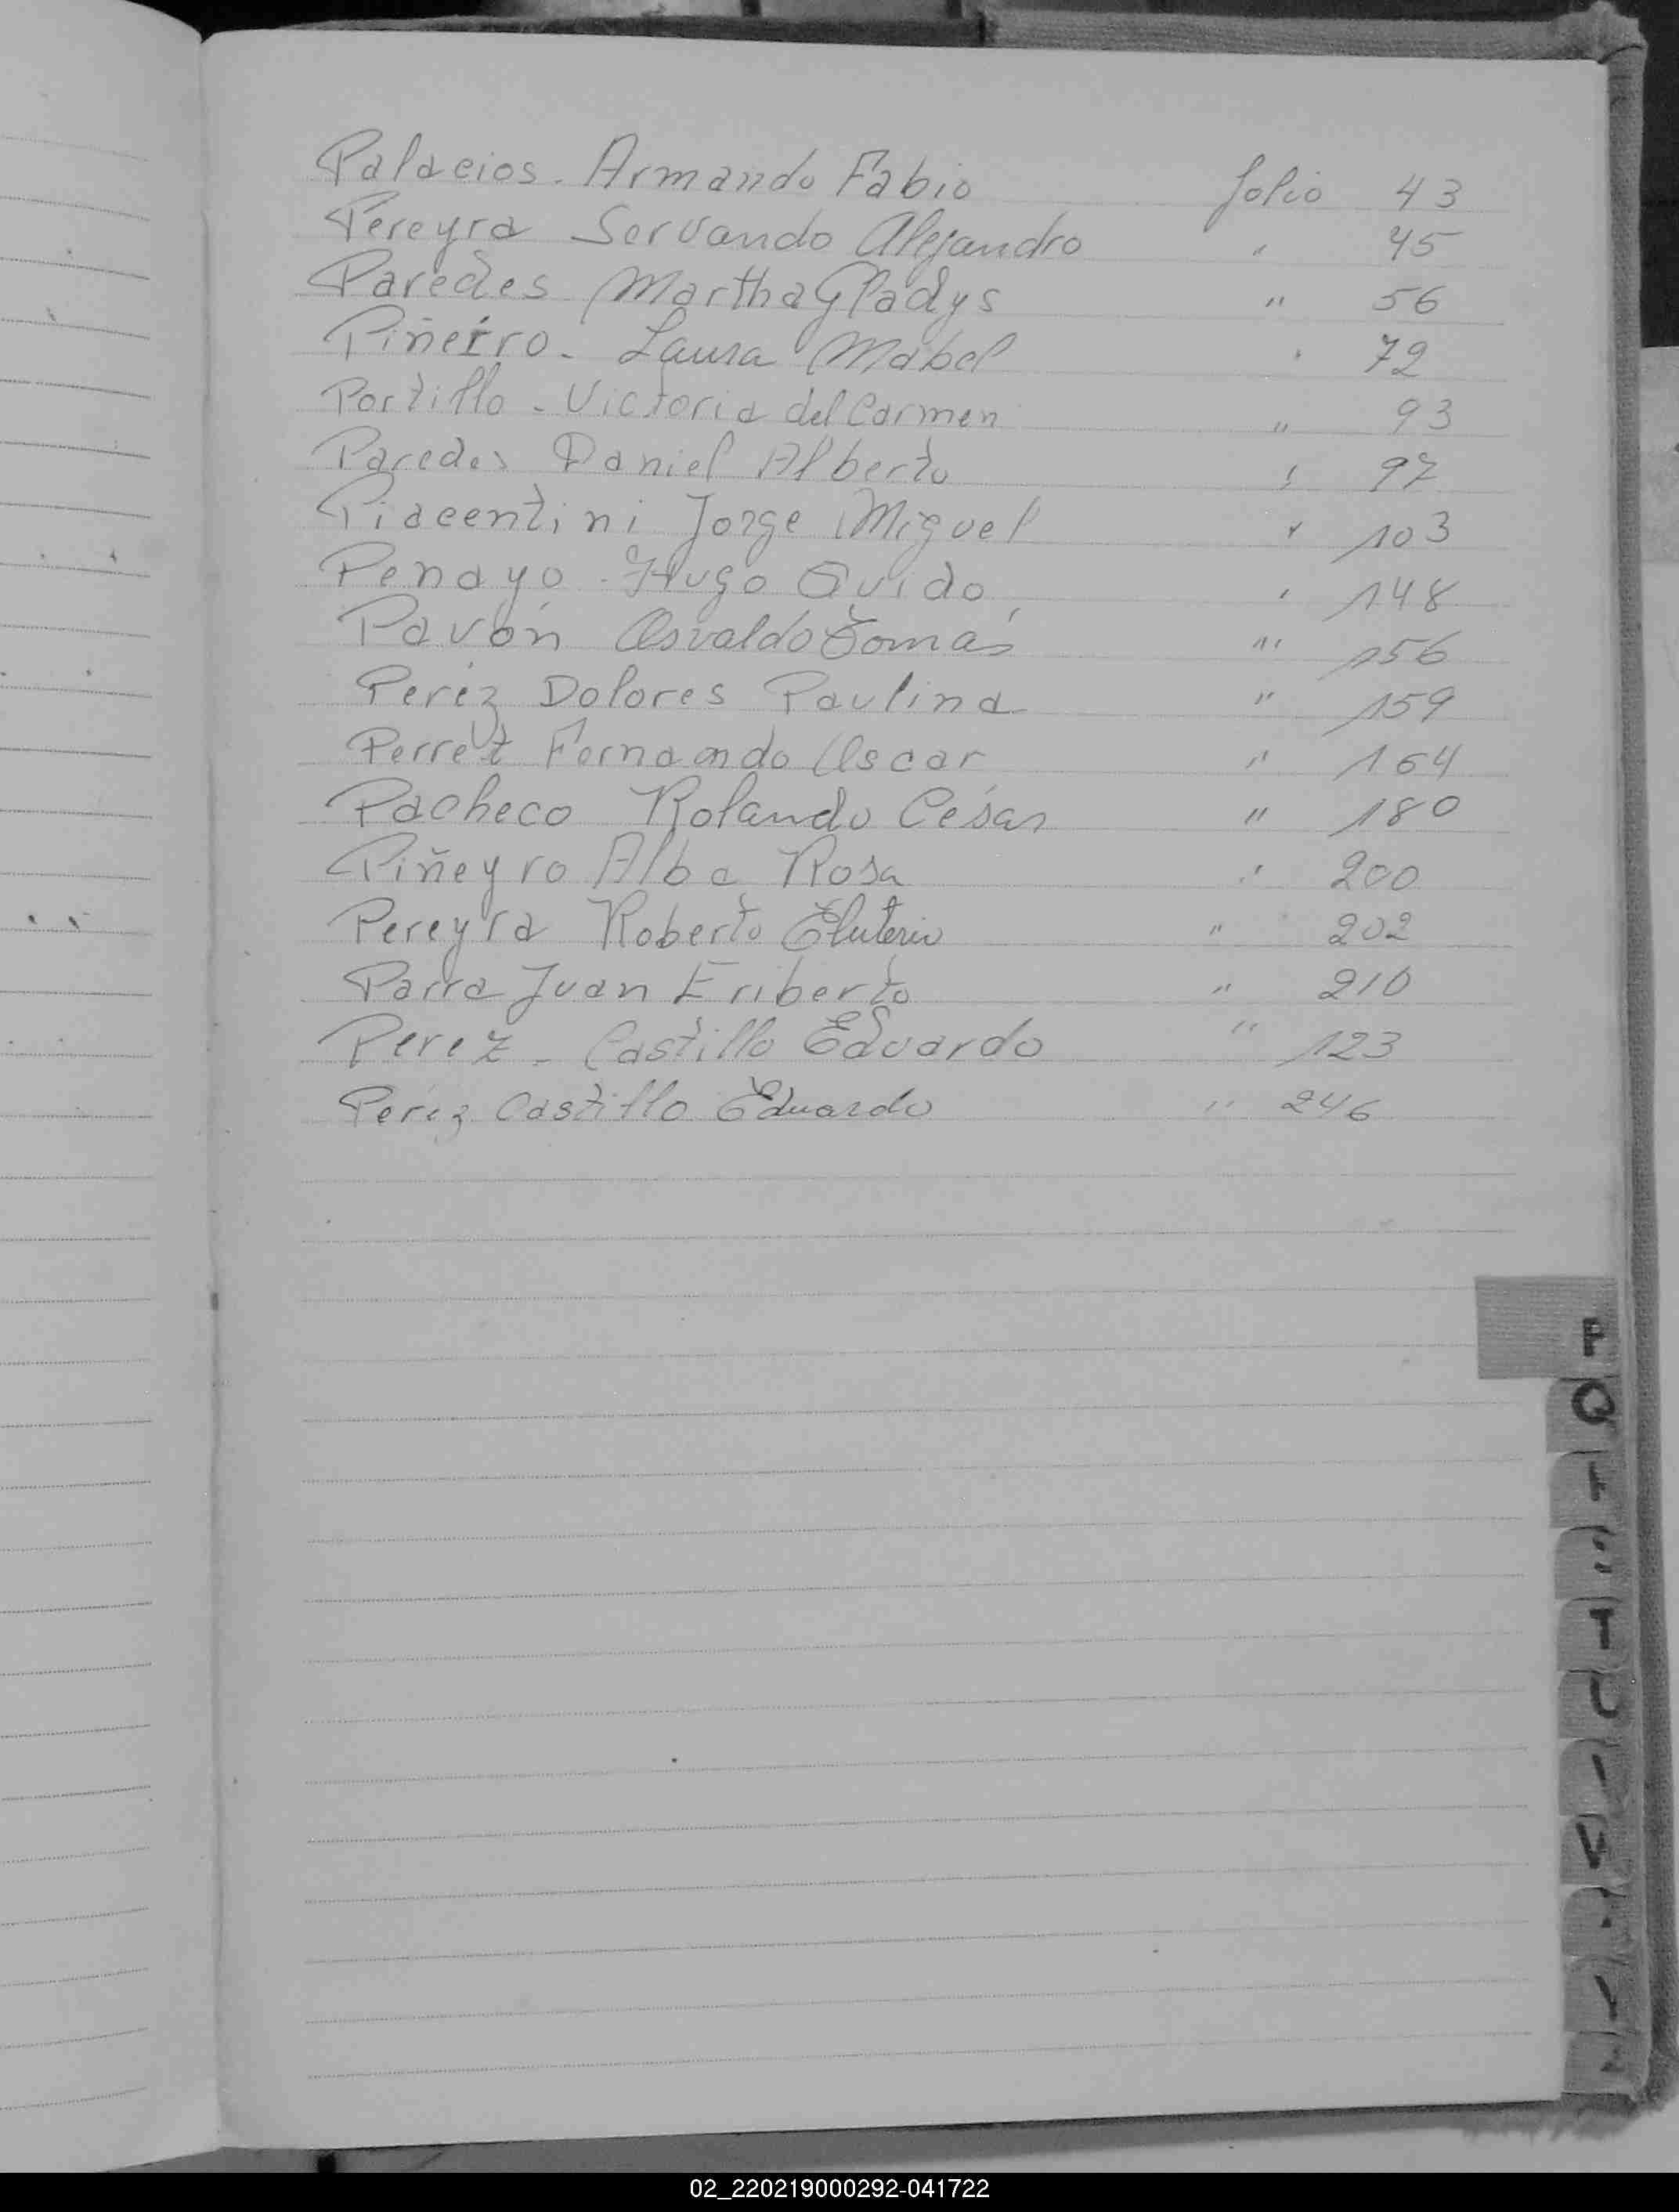 Palacios. Armando Fabio folio 43
Pereyra Servando Alejandro " 45
Paredes Martha Gladys " 56
Piñeiro. Laura Mabel " 72
Portillo - Victoria del Carmen " 93
Paredes Daniel Alberto " 97
Piacentini Jorge Miguel " 103
Penayo - Hugo Ovido " 148
Pavón Osvaldo Tomás " 156
Perez Dolores Paulina " 159
Perret Fernando Oscar " 164
Pacheco Rolando César " 180
Piñeyro Alba Rosa " 200
Pereyra Roberto Eluterio " 202
Parra Juan Eriberto " 210
Perez - Castillo Eduardo " 123
Perez Castillo Eduardo " 246
P
Q
T
V
02_220219000292-041722